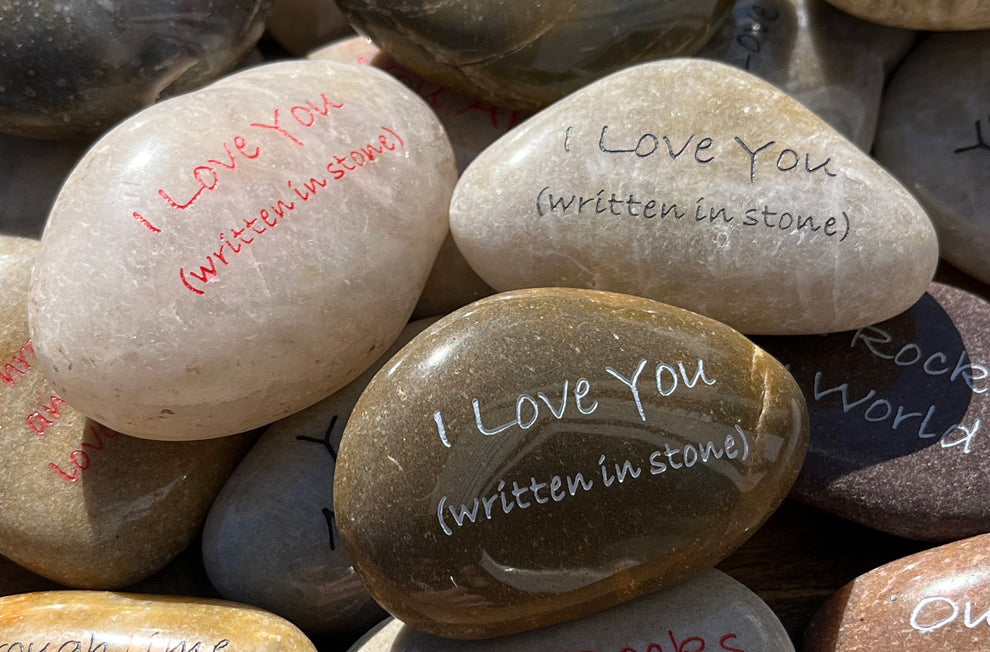 I Love You
(written in stone)
I Love You
(written in stone)
I Love You
(written in stone)
Rock
World
love